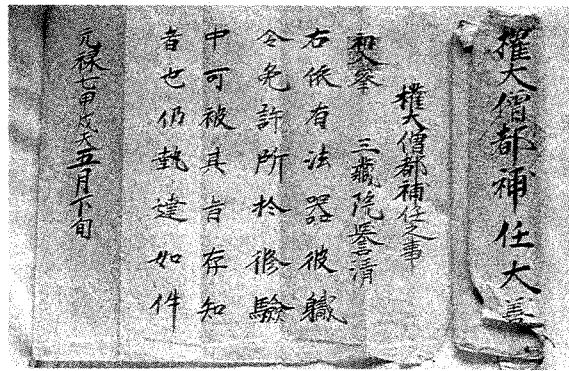 權大僧都補任大善
權大僧都補任之事
三蔵院誉清
右依有法器彼職
令免許所於修驗
中可被其旨存知
者也仍執達如件
元禄七甲戌天五月下旬